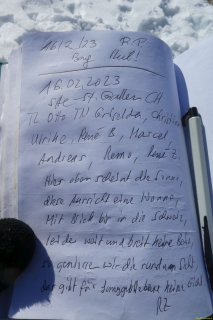 16/2/23 R.R.
Berg Heil!
16.02.2023
St. Gallen CH
TL Otto TV Christian
Ulrike, René B, Marcel
Andreas, Remo, René Z.
Hier oben scheint die Sonne,
diese Aussicht eine Wonne,
Mit Blick bis in die Schweiz,
leider weit und breit keine Beiz,
so geniessen wir die rund um Sicht
das gibt für keine Gicht
RZ